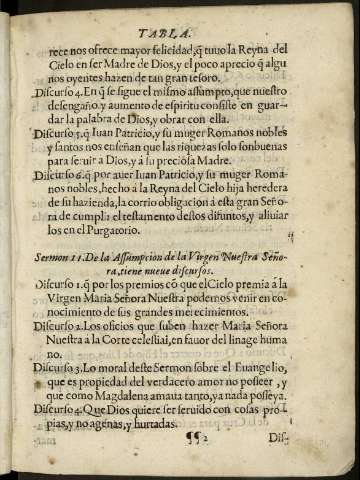 TABLA.
rece nos ofrece mayor felicidad, q̃ tuuo la Reyna del
Cielo en ser Madre de Dios, y el poco aprecio q̃ algu
nos oyentes hazen de tan gran tesoro.
Discurso 4. En q̃ se sigue el mismo assumpto, que nuestro
desengaño, y aumento de espiritu consiste en guar-
dar la palabra de Dios, y obrar con ella.
Discurso 5. q̃ Iuan Patricio, y su muger Romanos nobles
y santos nos enseñan que las riquezas solo son buenas
para seruir a Dios, y à su preciosa Madre.
Discurso 6. q̃ por auer Iuan Patricio, y su muger Roma-
nos nobles, hecho à la Reyna del Cielo hija heredera
de su hazienda, la corrio obligacion à esta gran Seño-
ra de cumplir el testamento destos difuntos, y aliuiar
los en el Purgatorio.
Sermon 11. De la Assumpcion de la Virgen Nuestra Seño-
ra, tiene nueue discursos.
Discurso 1. q̃ por los premios cõ que el Cielo premia à la
Virgen Maria Señora Nuestra podemos venir en co-
nocimiento de sus grandes merecimientos.
Discurso 2. Los oficios que suben hazer Maria Señora
Nuestra à la Corte celestial, en fauor del linage huma
no.
Discurso 3. Lo moral deste Sermon sobre el Euangelio,
que es propiedad del verdadero amor no posseer, y
que como Magdalena amaua tanto, ya nada posseya.
Discurso 4. Que Dios quiere ser seruido con cosas pro-
pias, y no agenas, y hurtadas.
¶¶ 2 Dis-